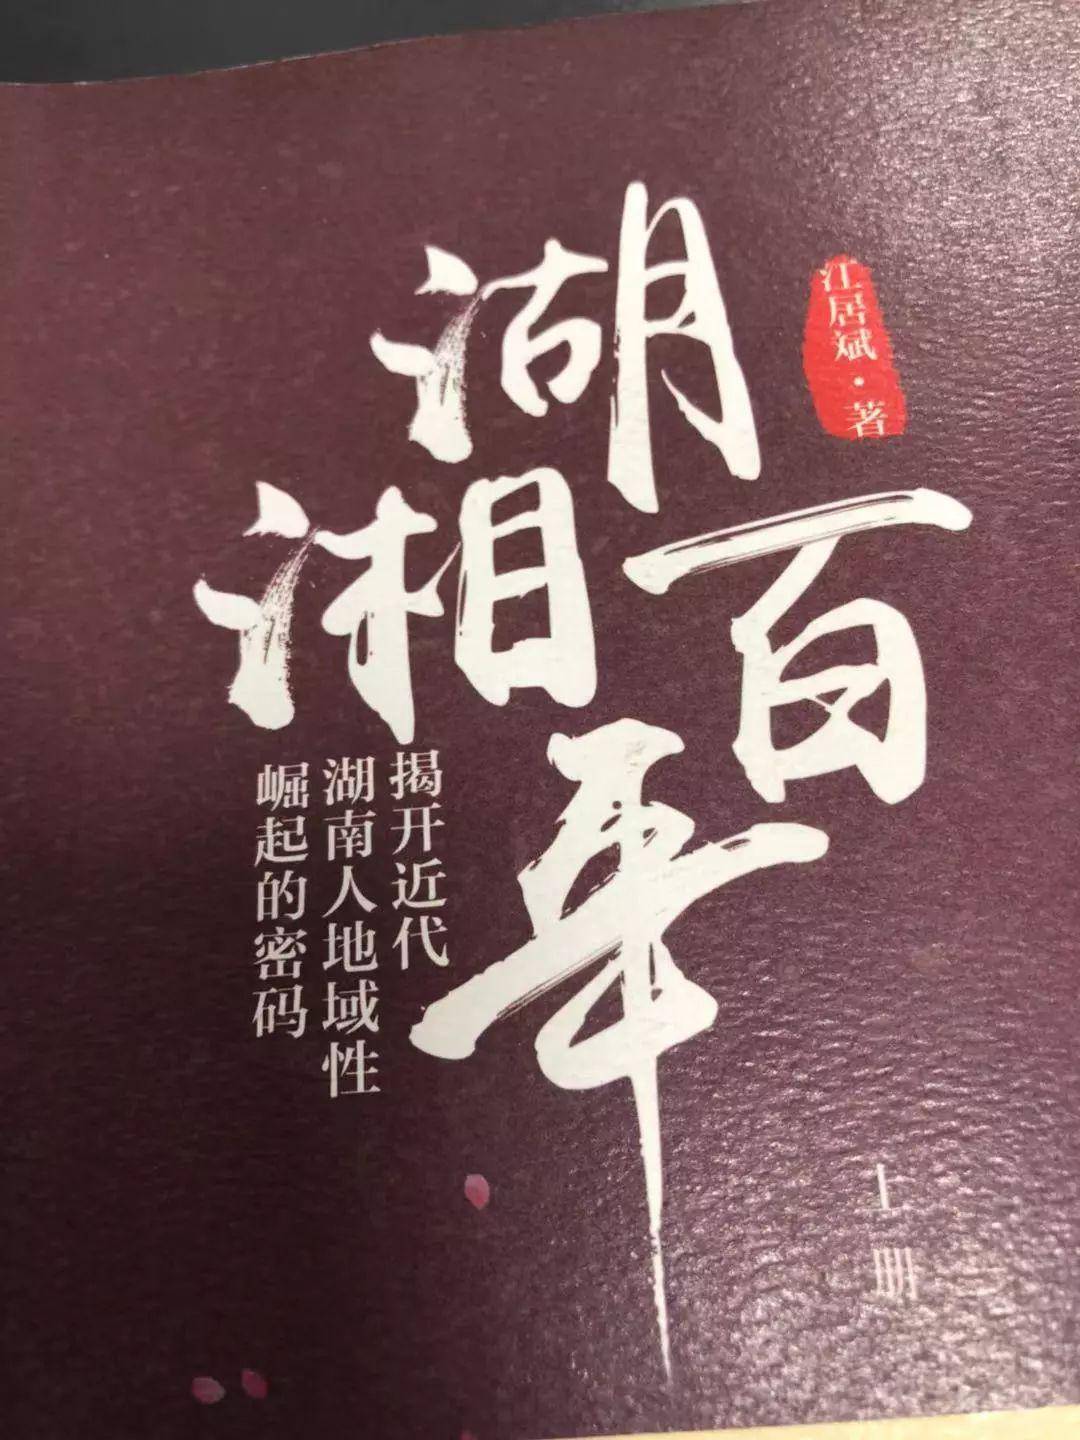 湖湘
百年
江居斌·著
揭开近代
湖南人地域性
崛起的密码
上册